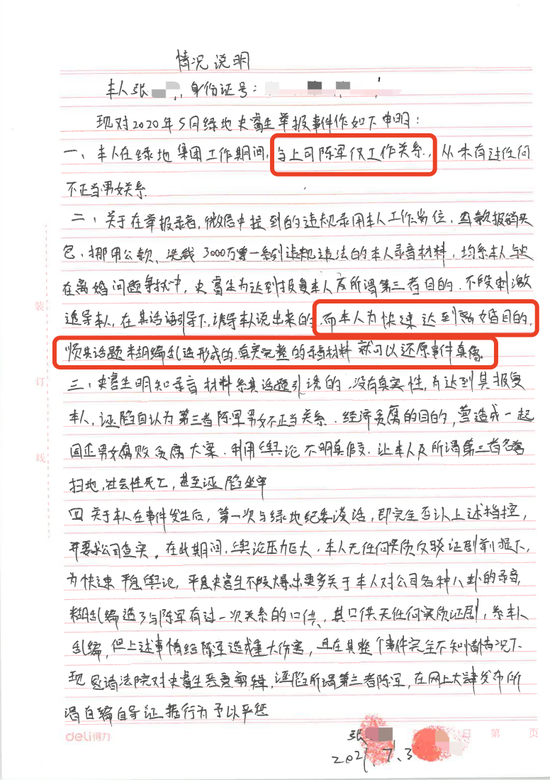 情况说明
本人张 ，身份证号：
现对2020年5月绿地史富生举报事件作如下申明：
一、本人在绿地集团工作期间，与上司陈军仅工作关系，从未有过任何
不正当男女关系
二、关于在举报录音，微信中提到的违规录用本人工作岗位，由款报销买
包、挪用公款、 3000万 一系列违规违法的本人录音材料，均系本人与史
在离婚问题争执中，史富生为达到报复本人及所谓第三者目的，不段刺激
诱导本人，在其话语引导下，诱导本人说出来的，而本人为快速达到离婚目的，
顺其话题 胡编乱造形成的，有完整的录音材料就可以还原事件真像
三、史富生明知录音材料系其话题引诱的，没有真实性，为达到其报复
本人，诬陷自认为第三者陈军男女不正当关系，经济贪腐的目的，营造成一起
因不正男女腐败贪腐大案，利用舆论不明真假 ，让本人及所谓第三者名誉
扫地，社会性死亡，甚至诬陷坐牢
四 关于本人在事件发生后，第一次与绿地纪委谈话，即完全否认上述指控，
并要求公司查实，在此期间，舆论压力巨大，本人无任何实质反驳证剧前提下，
为快速平息舆论，平息史富生不段爆出更多关于本人对公司各种八卦的录音，
胡乱编造了与陈军有过一次关系的口供，其口供无任何实质证剧，系本人
乱编，但上述事情给陈军造成重大伤害，且在其整个事件完全不知情情况下，
现恳请法院对史富生恶意剪辑，诬陷所谓第三者陈军，在网上大肆发布所
谓自编自导证据行为予以平惩
装
订
线
deli得力
第 页
张
2021 7.3